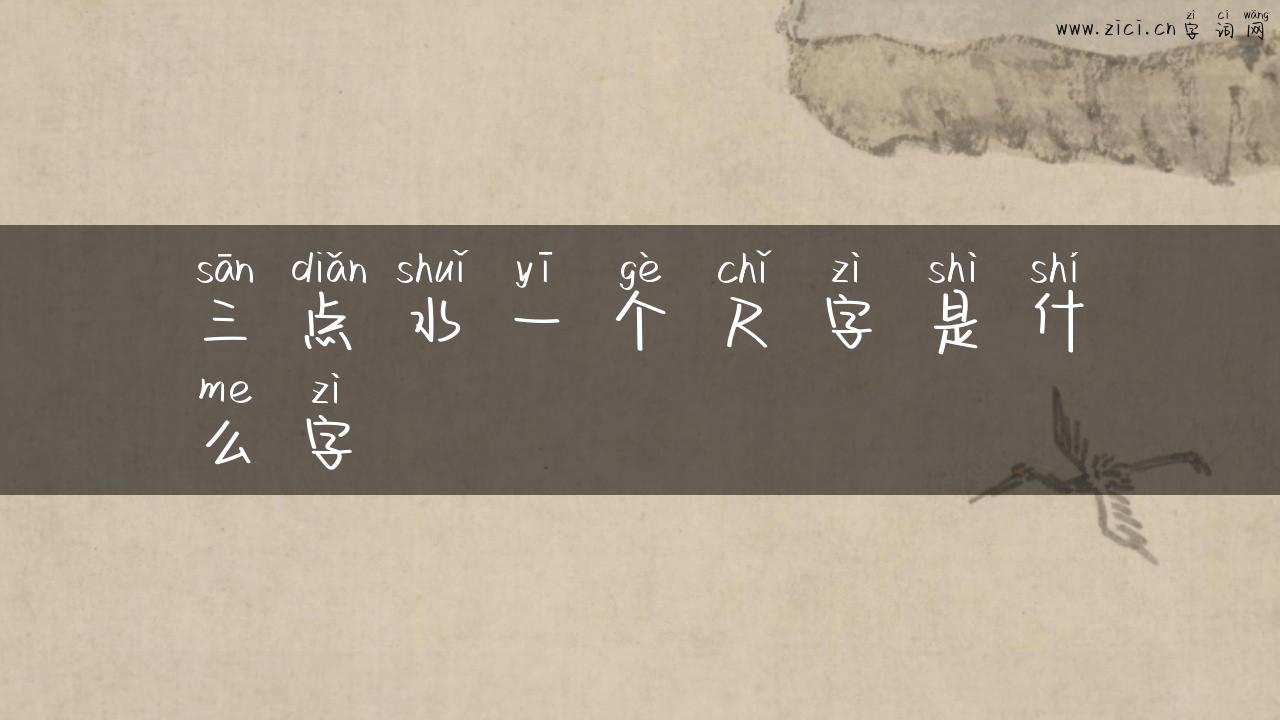 zì cí wǎng
www.zici.cn 字词网
sān diǎn shuǐ yī gè chǐ zì shì shí
三点水一个尺字是什
me zì
么字